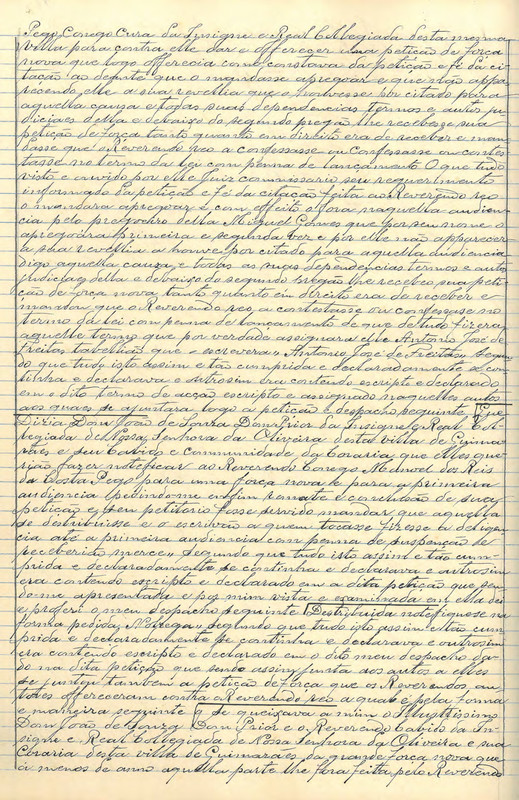 Pego, Conego Cura da Insigne e Real Collegiada desta mesma
villa para contra elle dar e offerecer uma petição de força
nova que logo offerecia como constava da petição e fé da ci-
tação ao deante que o mandasse apregoar e que não appa-
recendo elle a sua revellia que o houvesse por citado para
aquella causa e todas suas dependencias termos e autos ju-
diciaes della e debaixo do segundo pregão lhe recebesse sua
petição de força tanto quanto em direito era de receber e man-
dasse que o Reverendo reo a confessasse ou contes-
tasse no termo da lei com penna de lançamento O que tudo
visto e ouvido por elle Juiz commissario seu requerimento
informado da petição e fé da citação feita ao Reverendo reo
o mandara apregoar e com effeito o fora naquella audien-
cia pelo pregoeiro della Miguel Gomes que por seu nome o
apregoara primeira e segunda vez e por elle não apparecer
a sua revellia o houve por citado para aquella audiencia
digo aquella causa e todas as suas dependencias termos e autos
judiciaes della e debaixo do segundo pregão lhe recebeu sua peti-
ção de força nova tanto quanto em direito era de receber e
mandou que o Reverendo reo a contestasse ou confessasse no
termo da lei com penna de lançamento de que de tudo fizera
aquelle termo que por verdade assignara elle Antonio José de
Freitas tabellião que o escrevera» Antonio José de Freitas» Segun-
do que tudo isto assim e tão cumprida e declaradamente se con-
tinha e declarava e outrosim era contendo escripto e declarado
em o dito termo de acção escripto e assignado naquelles autos
aos quaes se ajuntara logo a petição e despacho seguinte Que
Diziá Dom João de Souza Dom Prior da Insigne e Real Col-
legiada de Nossa Senhora da Oliveira desta villa de Guima-
rães e seu Cabido e Communidade da Coraria que elles que-
rião fazer notificar ao Reverendo Conego Manoel dos Reis
da Costa Pego para uma força nova e para a primeira
audiencia pedindome em fim remate e conclusão de sua
petição e sem petitorio fosse servido mandar que aquella
se destribuisse e o escrivão a quem tocasse fizesse a deligen-
cia até a primeira audiencia com penna de suspenção e
receberião merce» Segundo que tudo isto assim e tão cum-
prida e declaradamente se continha e declarava e outrosim
era contendo escripto e declarado em a dita petição que sen-
do-me apresentada e por mim vista e examinada em ella dei
e proferi o meu despacho seguinte Destribuida notefiquese na
forma pedida, segundo que tudo isto assim e tão cum-
prida e declaradamente se continha e declarava e outrosim
era contendo escripto e declarado em o dito meu despacho da-
do na dita petição que sendo assim junta aos autos a elles
se juntou tambem a petição de força que os Reverendos au-
tores offereceram contra o Reverendo reo a qual é pela forma
e maneira seguinte se queixava a mim o Illustrissimo
Dom João de Souza Dom Prior e o Reverendo Cabido da In-
signe e Real Collegiada de Nossa Senhora da Oliveira e sua
Coraria desta villa de Guimarães da grande força nova que
a menos de anno aquella parte lhe fora feita pelo Reverendo